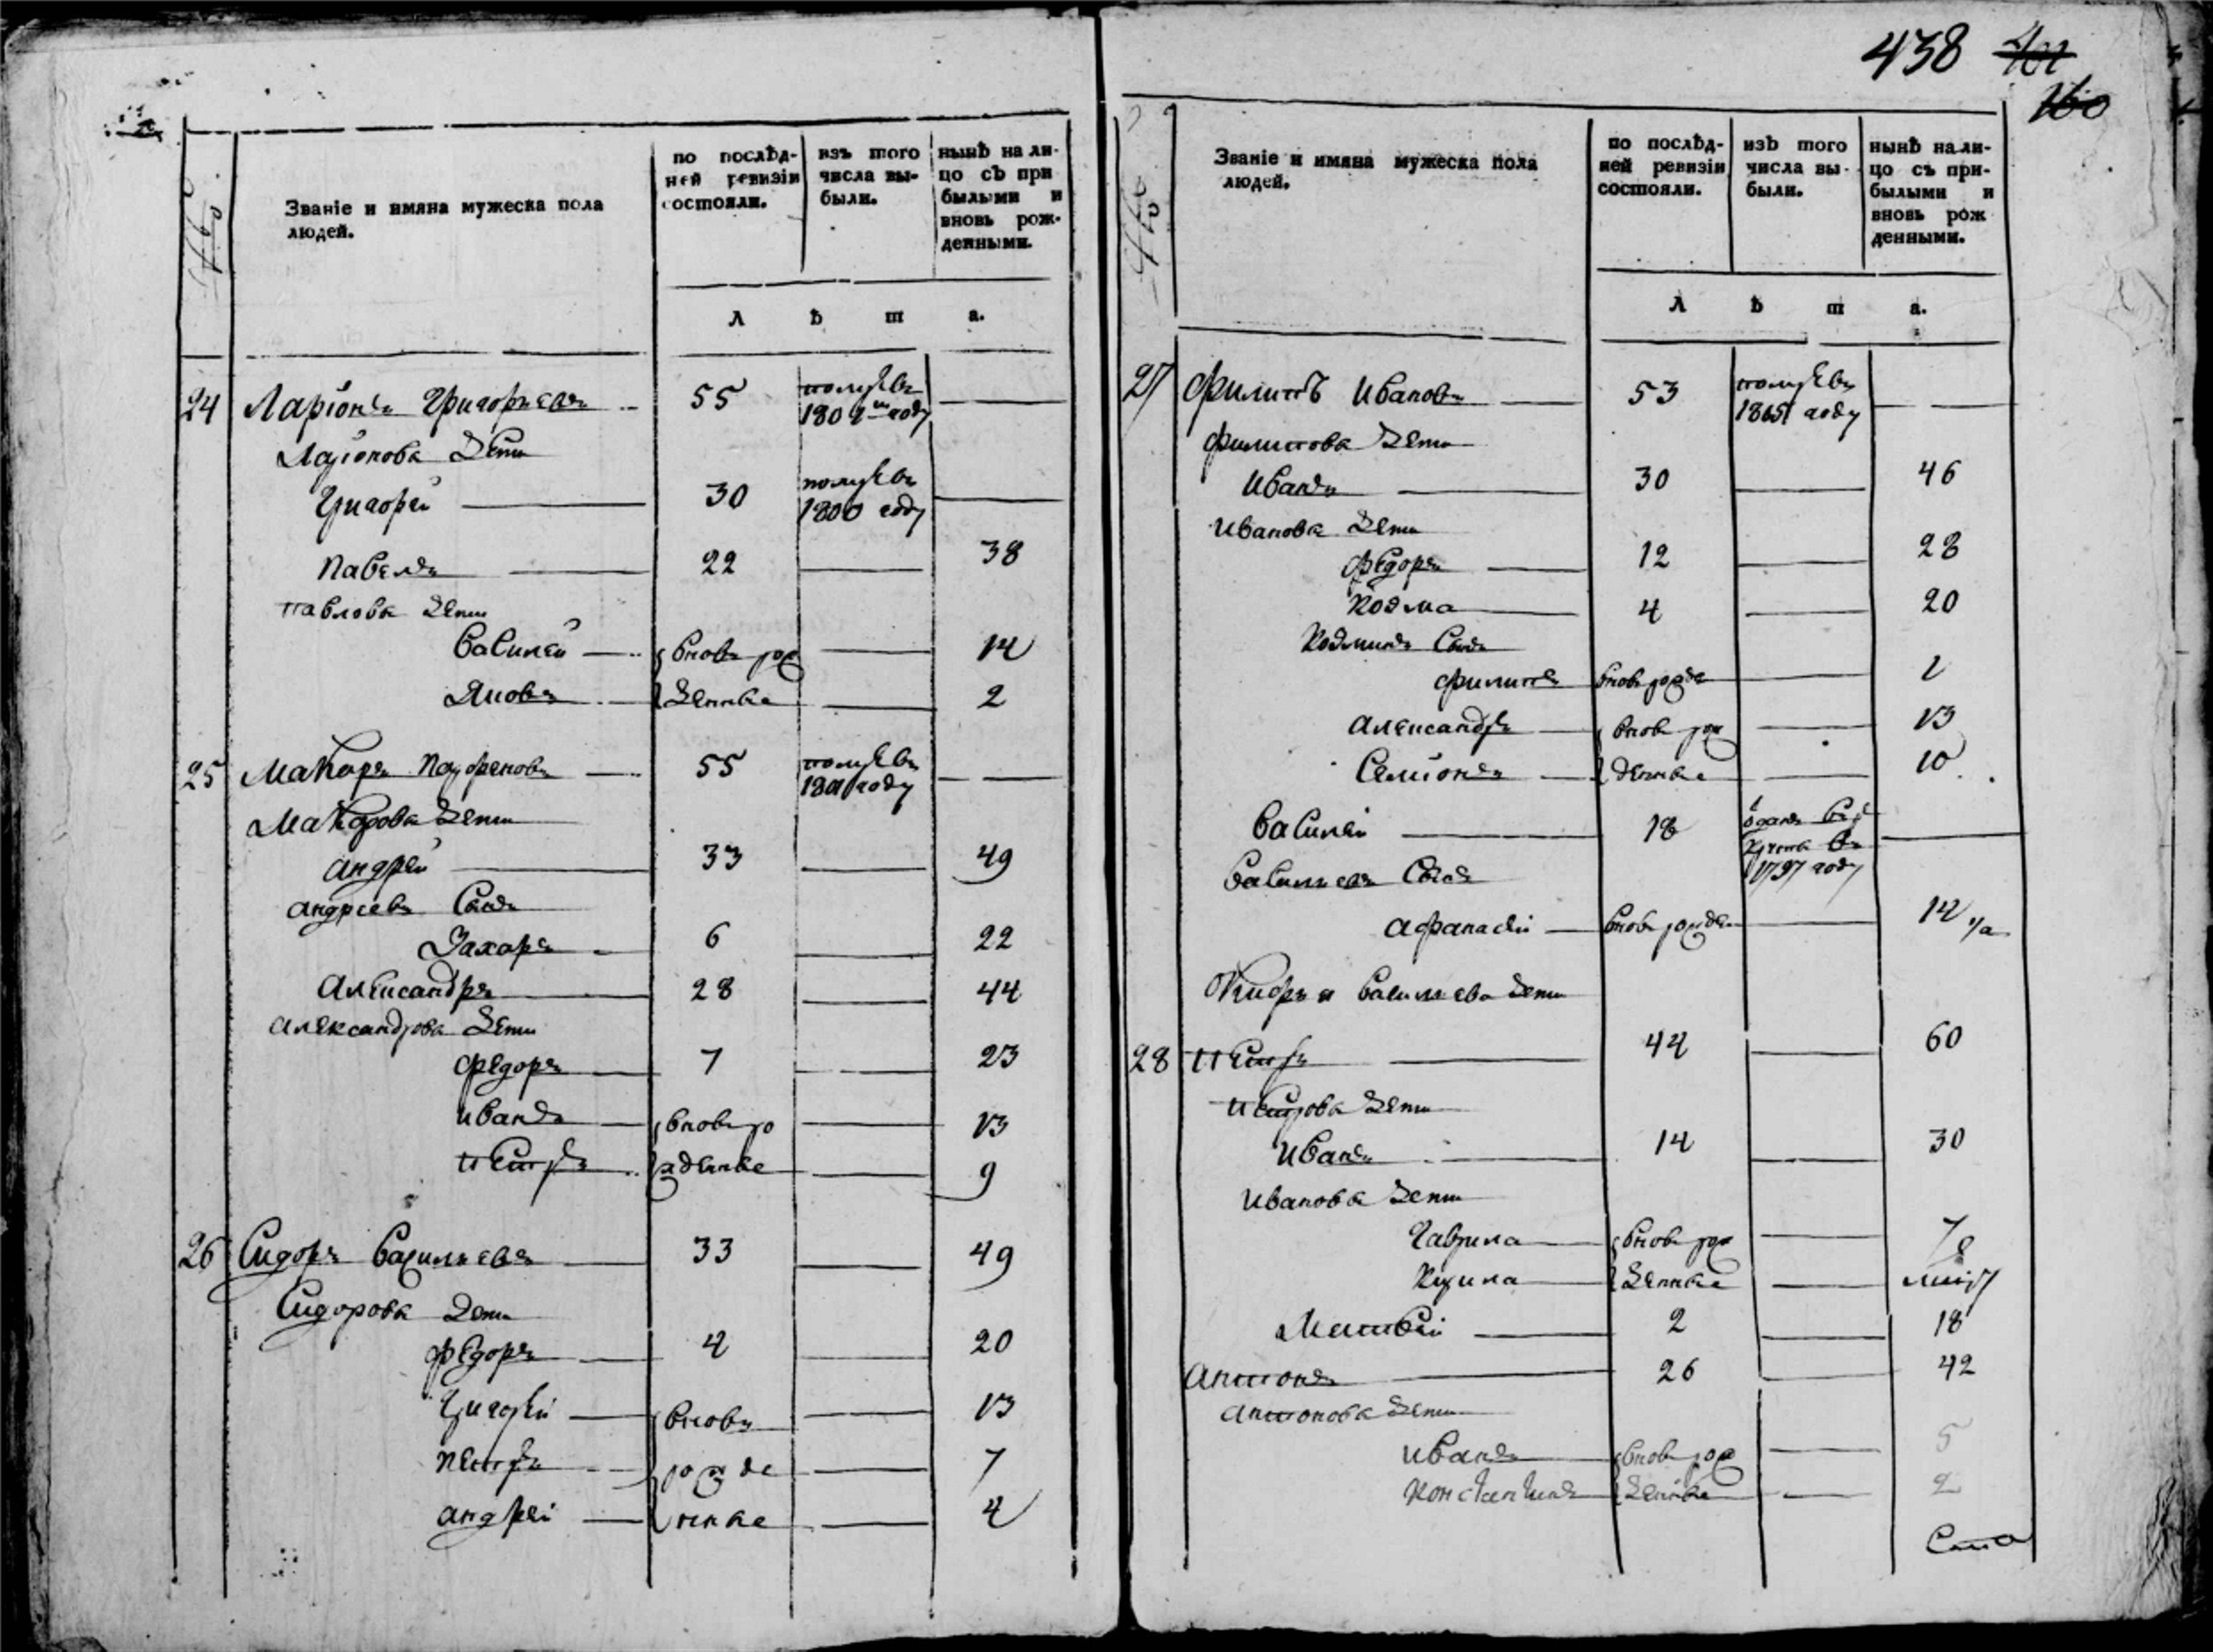 438
Званіе и имяна мужеска пола
людей.
по послѣд-
ней ревизіи
состояли.
изъ того
числа вы-
были.
нынѣ на ли-
цо съ при
былыми и
вновь рож-
денными.
л ѣ т а.
24 Ларіонъ Григорьевъ 55 помре въ
1801 году
Ларіонова дети
Григорей 30 помре въ
1800 году
Павелъ 22 38
Павлова дети
Василей вновь рож 14
Яковъ денные 2
25 Макаръ Парфеновъ 55 помре въ
1801 году
Макарова дети
Андрей 33 49
Андреевъ сынъ
Захаръ 6 22
Александръ 28 44
Александрова дети
Федоръ 7 23
Иванъ вновь ро 13
Петръ жденные 9
26 Сидоръ Васильевъ 33 49
Сидорова дети
Федоръ 4 20
Григорей вновь 13
Петръ рожде 7
Андрей нные 4
Званіе и имяна мужеска пола
людей.
по послѣд-
ней ревизіи
состояли.
изъ того
числа вы-
были.
нынѣ нали-
цо съ при-
былыми и
вновь рож
денными.
л ѣ т а.
27 Филипъ Ивановъ 53 помре въ
году
Филипова дети
Иванъ 30 46
Иванова дети
Федоръ 12 28
Козма 4 20
Козминъ сынъ
Филипъ вновь рожде
Александръ вновь рож 13
Семіонъ денные 10
Василей 18 отданъ въ
рекруты въ
1797 году
Васильевъ сынъ
Афанасей вновь рожден 14
Васильева дети
28 Петръ 44 60
Петрова дети
Иванъ 14 30
Иванова дети
Гаврила вновь рож 7
Кирила денные
Матвей 2 18
Антонъ 26 42
Антонова дети
Иванъ вновь рож 5
Константинъ денные 2